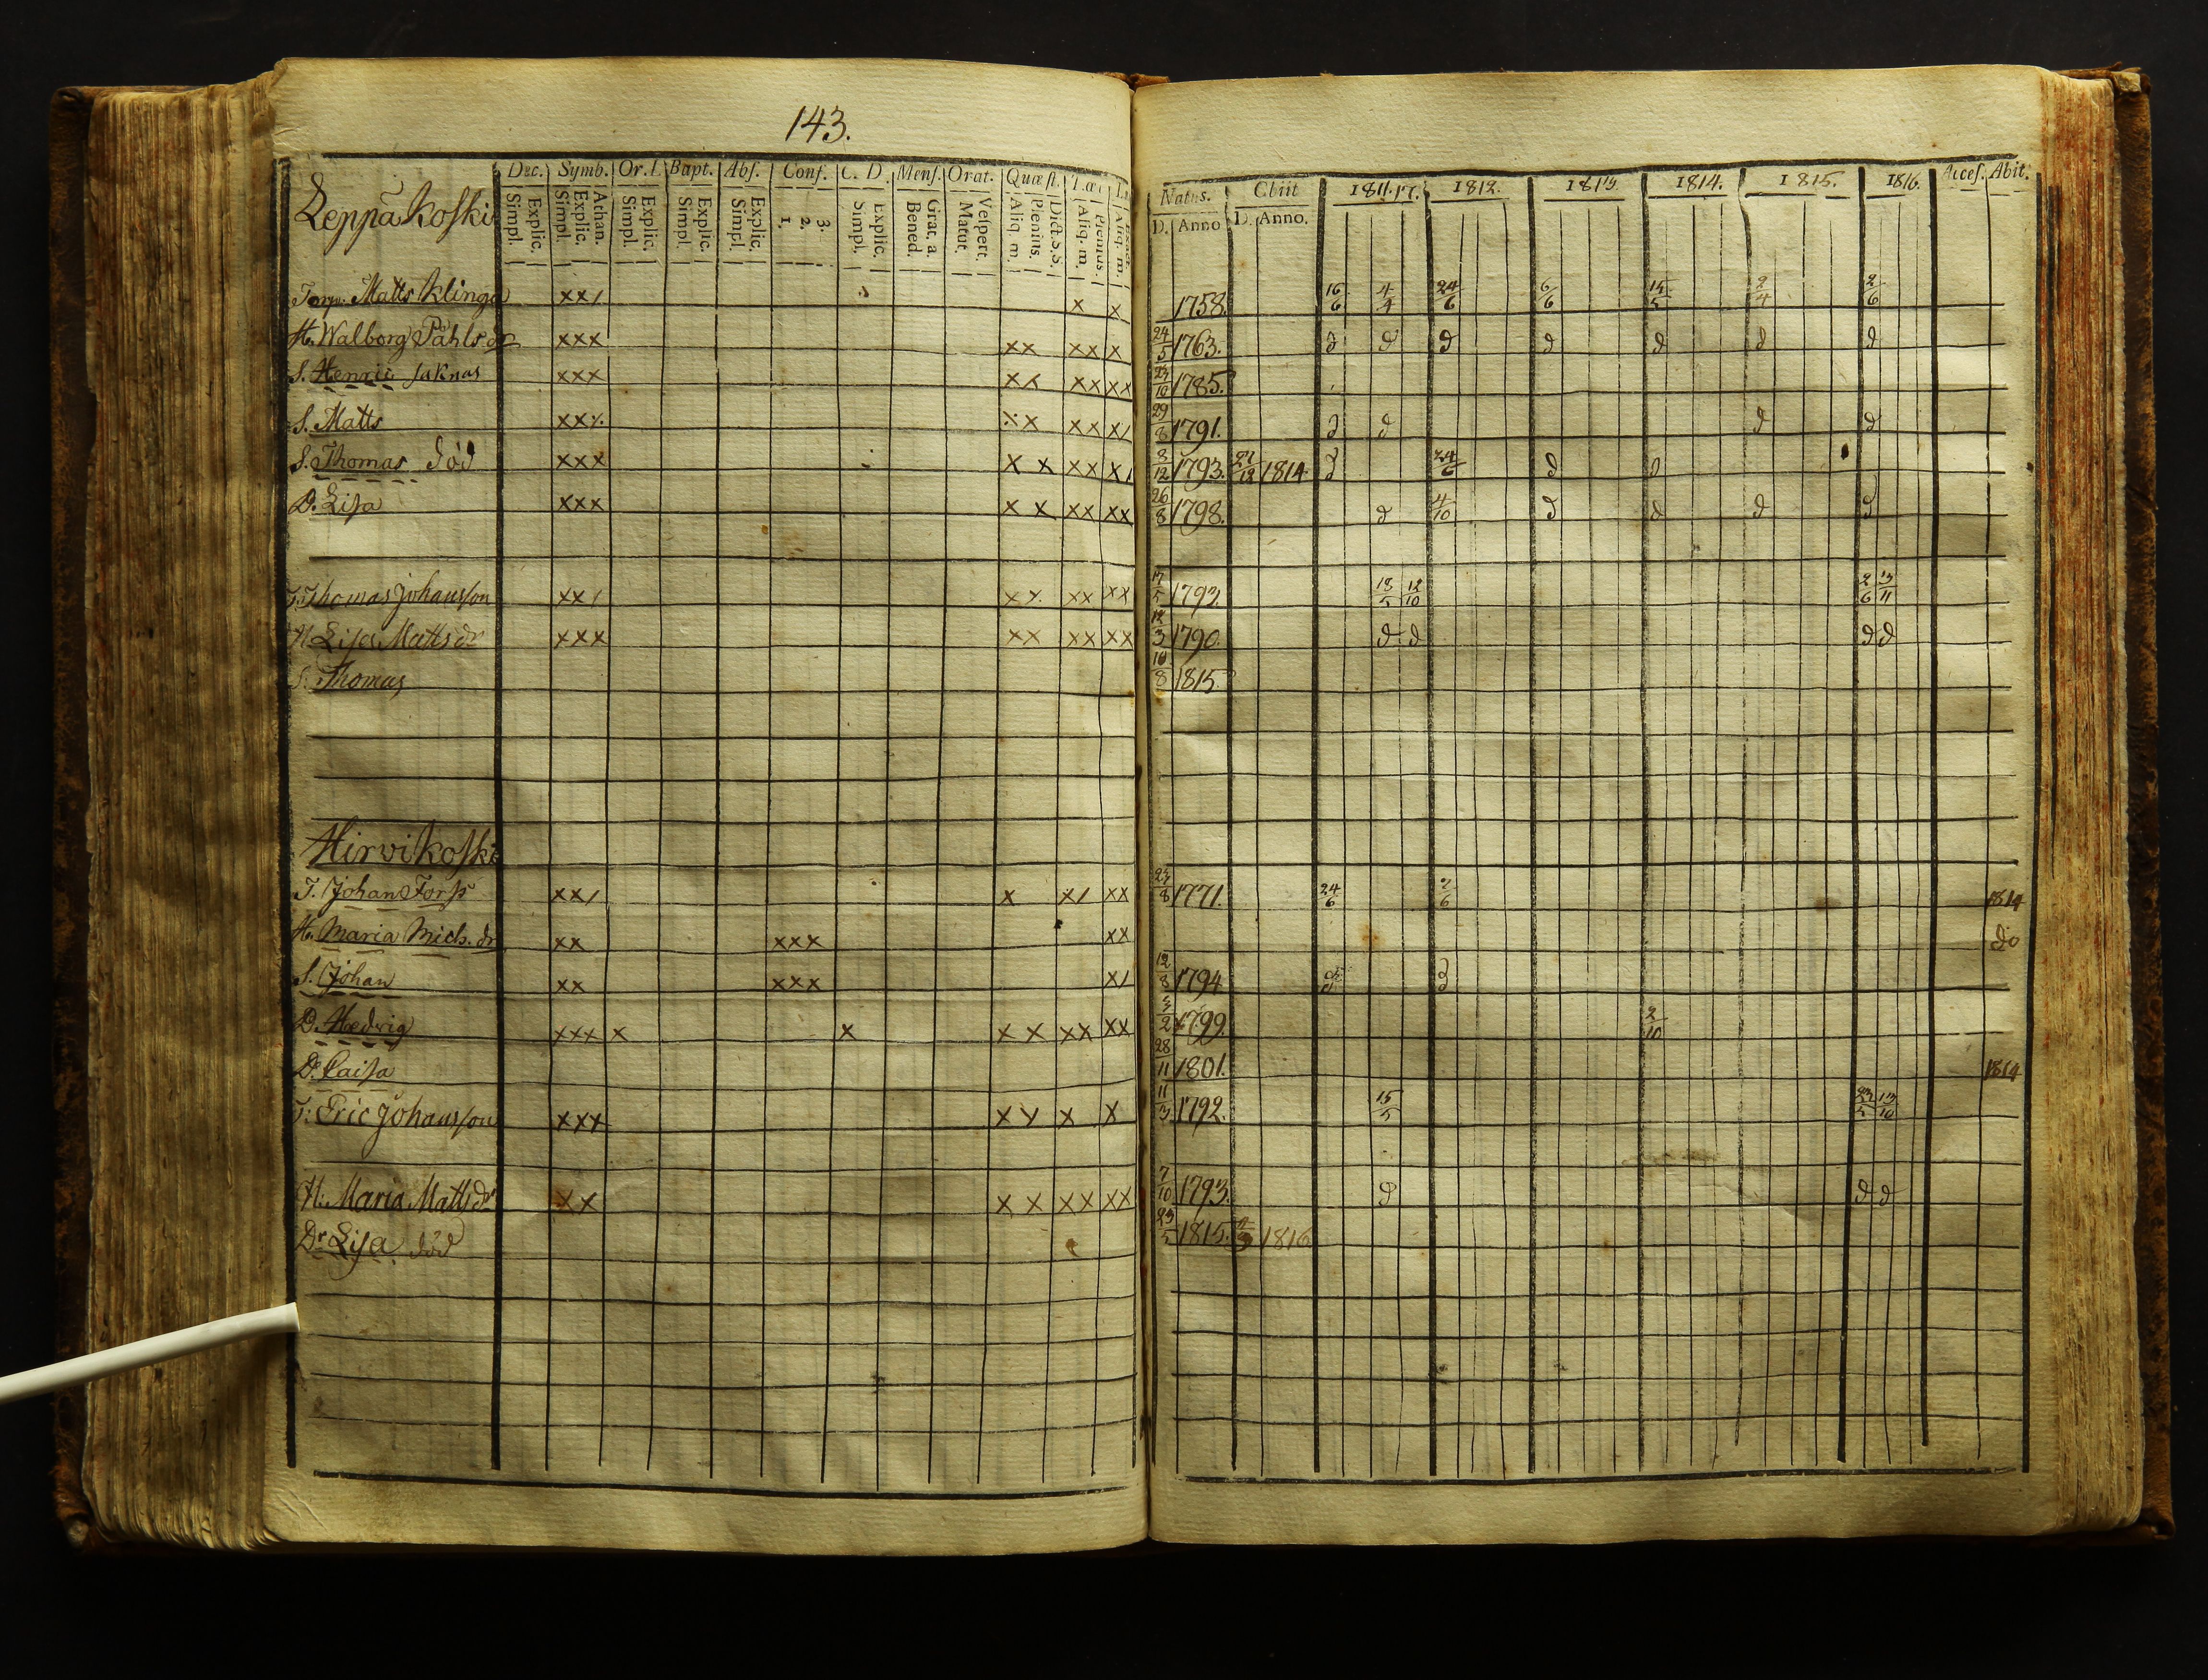 143.
Leppäkoski Dec. Symb. Or. Bapt. Abs. Conf. C. D. Mens. Orat. Quæst.
Simpl. Explic. Simpl. Explic. Athan. Simpl. Explic. Simpl. Explic. Simpl. Explic. 1. 2. 3. Simpl. Explic. Bened. Grat. a. Matut. Vespert. Aliq. m. Plenius. Dict. S.S. Aliq. m. Plenius. Aliq. m.
Natus. Obiit 1811. 17. 1812. 1813 1814. 1815. 1816. Acces. Abit.
D. Anno D. Anno.
Torp. Matts Klinga xx/ x x 1758. 16/6 4/4 24/6 6/6 14/5 2/4 2/6
H. Walborg Påhlsdr xxx xx xx x 24/5 1763. d d d d d d d
S. Henric saknas xxx xx xx xx 23/10 1785.
S. Matts xx xx xx x/ 29/8 1791. d d d d
S. Thomas död xxx x x xx x/ 8/12 1793. 21/12 1814 d 24/6 d d
D. Lisa xxx x x xx xx 26/8 1798. d 4/10 d d d d
T. Thomas Johansson xx/ xx xx xx 17/5 1793. 18/5 12/10 2/6 13/11
H. Lisa Mattsdr xxx xx xx xx 12/3 1790. d d d d
S. Thomas 10/8 1815.
Hirvikoski
T. Johan Forss xx/ x x/ xx 23/8 1771. 24/6 2/6 1814
H. Maria Mich. dr xx xxx xx do
S. Johan xx xxx x/ 12/8 1794 d
D. Hedvig xxx x x x x xx xx 2 1799. 2/10
D. Caisa 28/11 1801. 1814
T: Eric Johansson xxx x x x x 11/3 1792. 15/5 23/5 13/10
H: Maria Mattsdr xx x x xx xx 7/10 1793. d d d
Dr Lisa död 23/5 1815. 1816